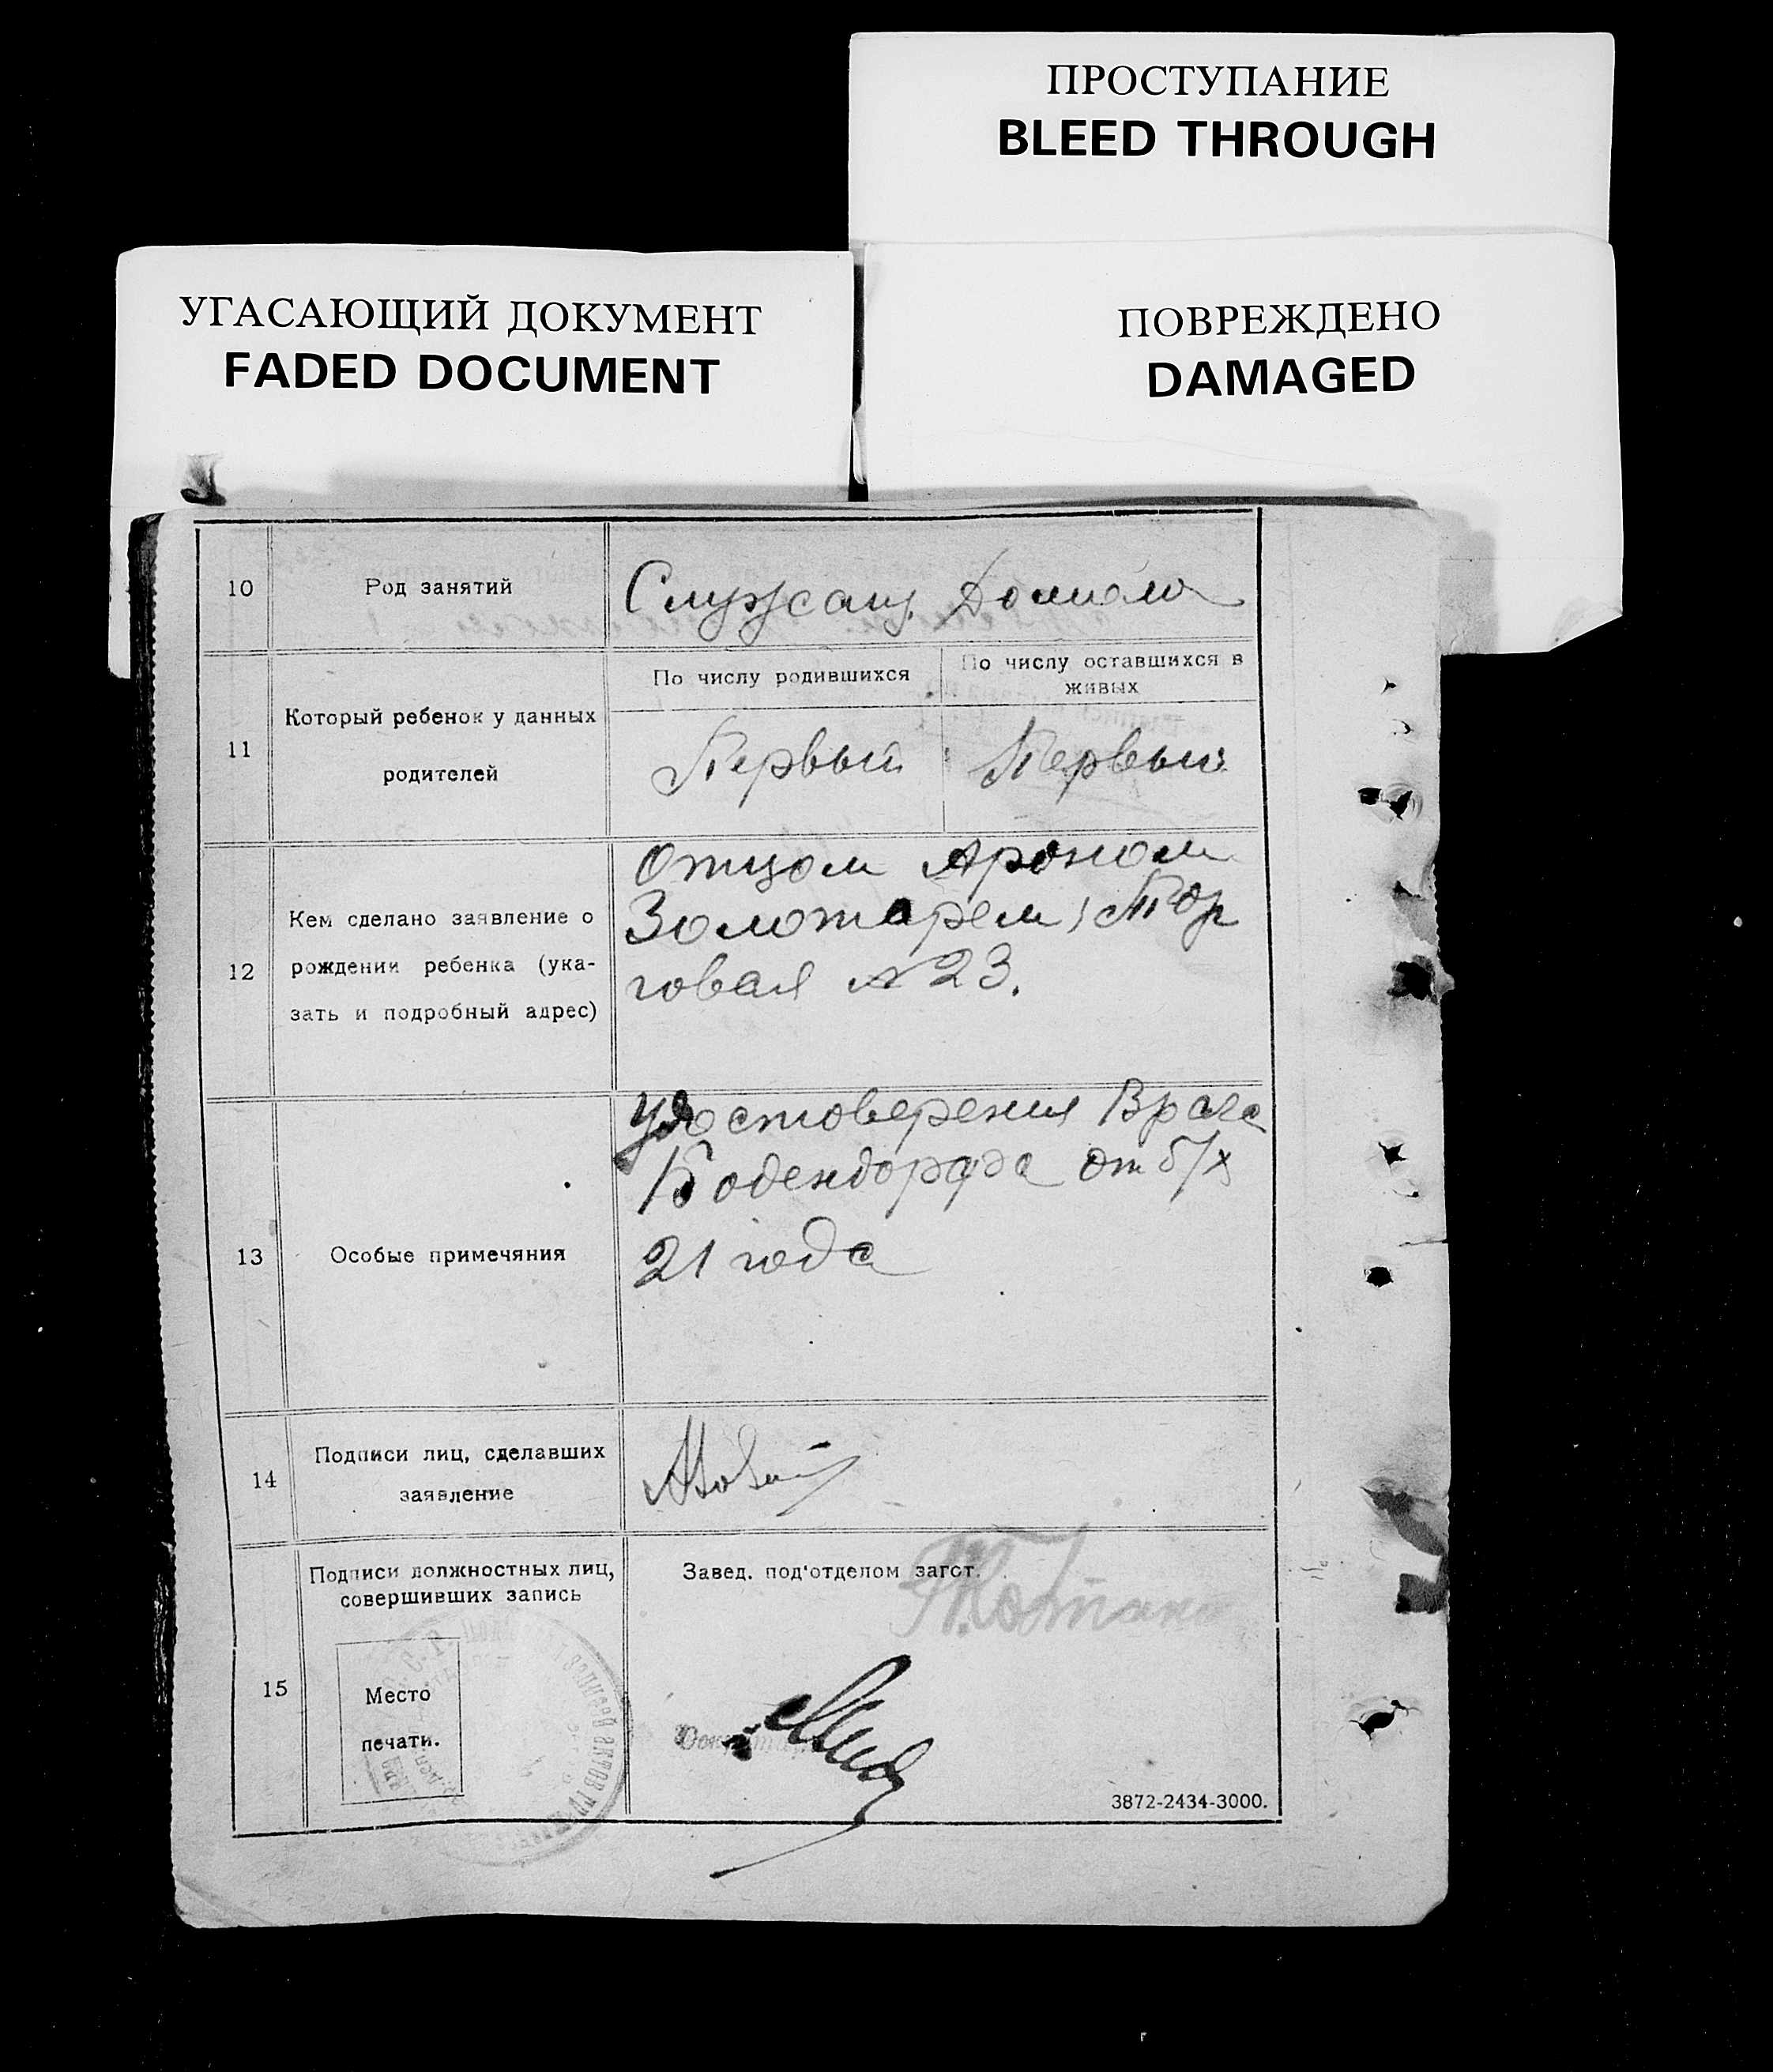 ПРОСТУПАНИЕ
BLEED THROUGH
УГАСАЮЩИЙ ДОКУМЕНТ
FADED DOCUMENT
ПОВРЕЖДЕНО
DAMAGED
10
Род занятий
Служащ.
11
Который ребенок у данных
родителей
По числу родившихся
По числу оставшихся в
живых
Первый
Первый
12
Кем сделано заявление о
рождении ребенка (ука-
зать и подробный адрес)
Отцом Ароном
Золотарем, Тор
говая № 23.
13
Особые примечяния
Удостоверения Врача
Бодендорфа от 5/X
21 года
14
Подписи лиц, сделавших
заявление
15
Подписи должностных лиц,
совершивших запись
Место
печати.
Завед. под'отделом загст.
3872-2434-3000.